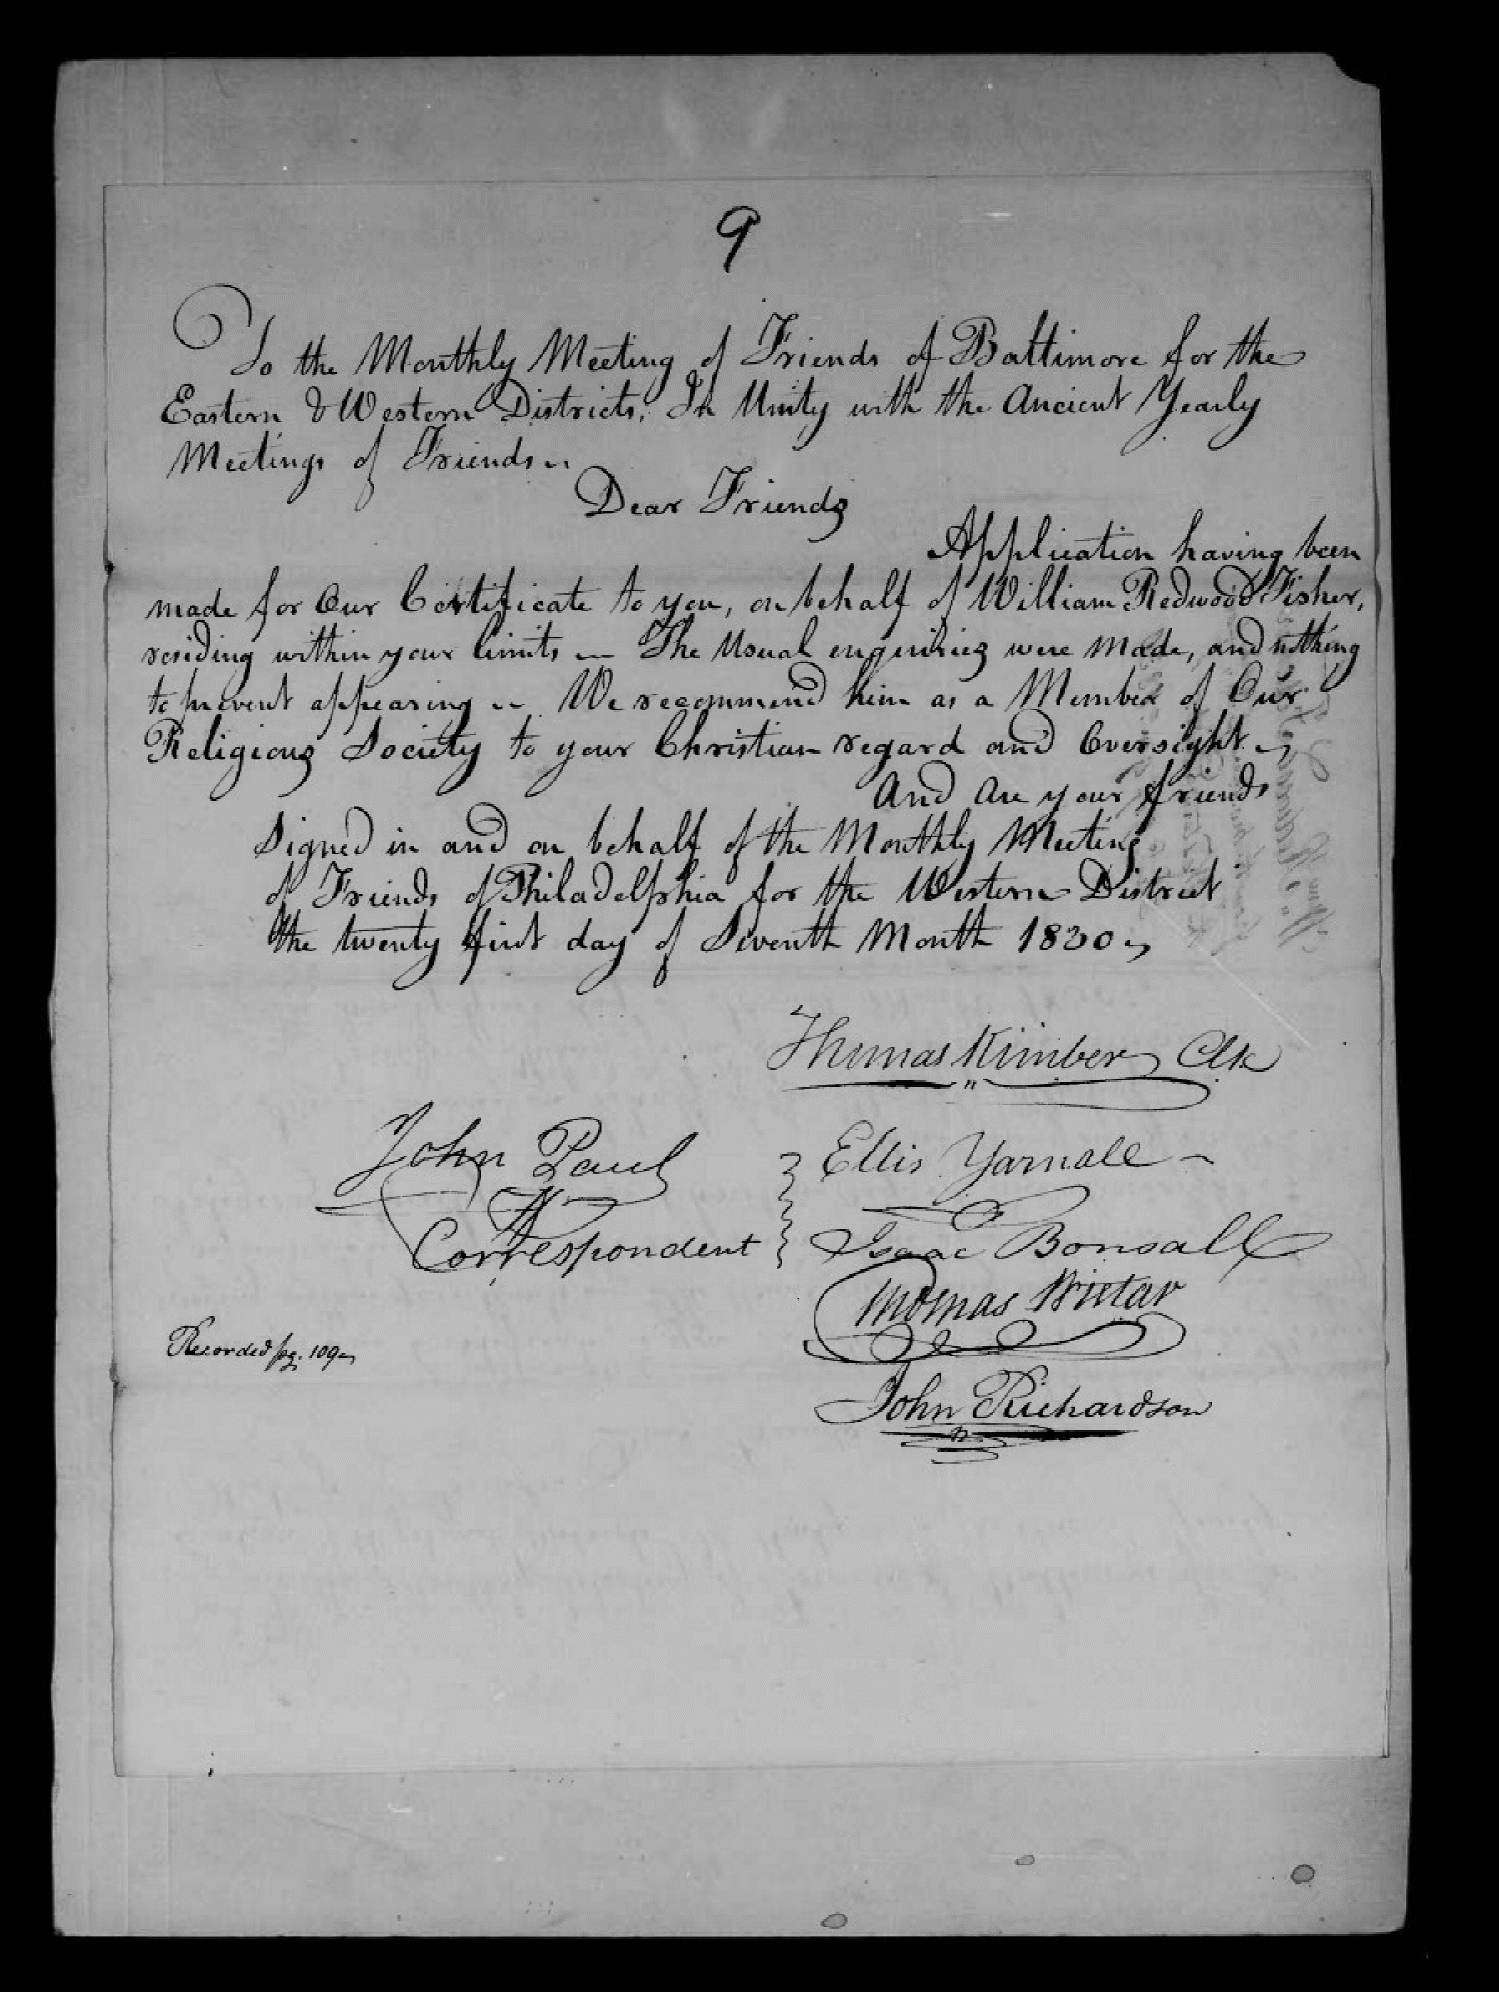 9
To the Monthly Meeting of Friends of Baltimore for the
Eastern & Western Districts, In Unity with the Ancient Yearly
Meetings of Friends
Dear Friends
Application having been
made for Our Certificate to you, on behalf of William Redwood Fisher,
residing within your limits — The Usual enquiries were Made, and nothing
to prevent appearing — We recommend him as a Member of Our
Religious Society to your Christian regard and Oversight
And Are your friends
Signed in and on behalf of the Monthly Meeting
of Friends of Philadelphia for the Western District
the twenty first day of Seventh Month 1830
Thomas Kimber Clk
John Paul
Correspondent
Ellis Yarnall
Isaac Bonsall
Thomas Wistar
John Richardson
Recorded pg. 109